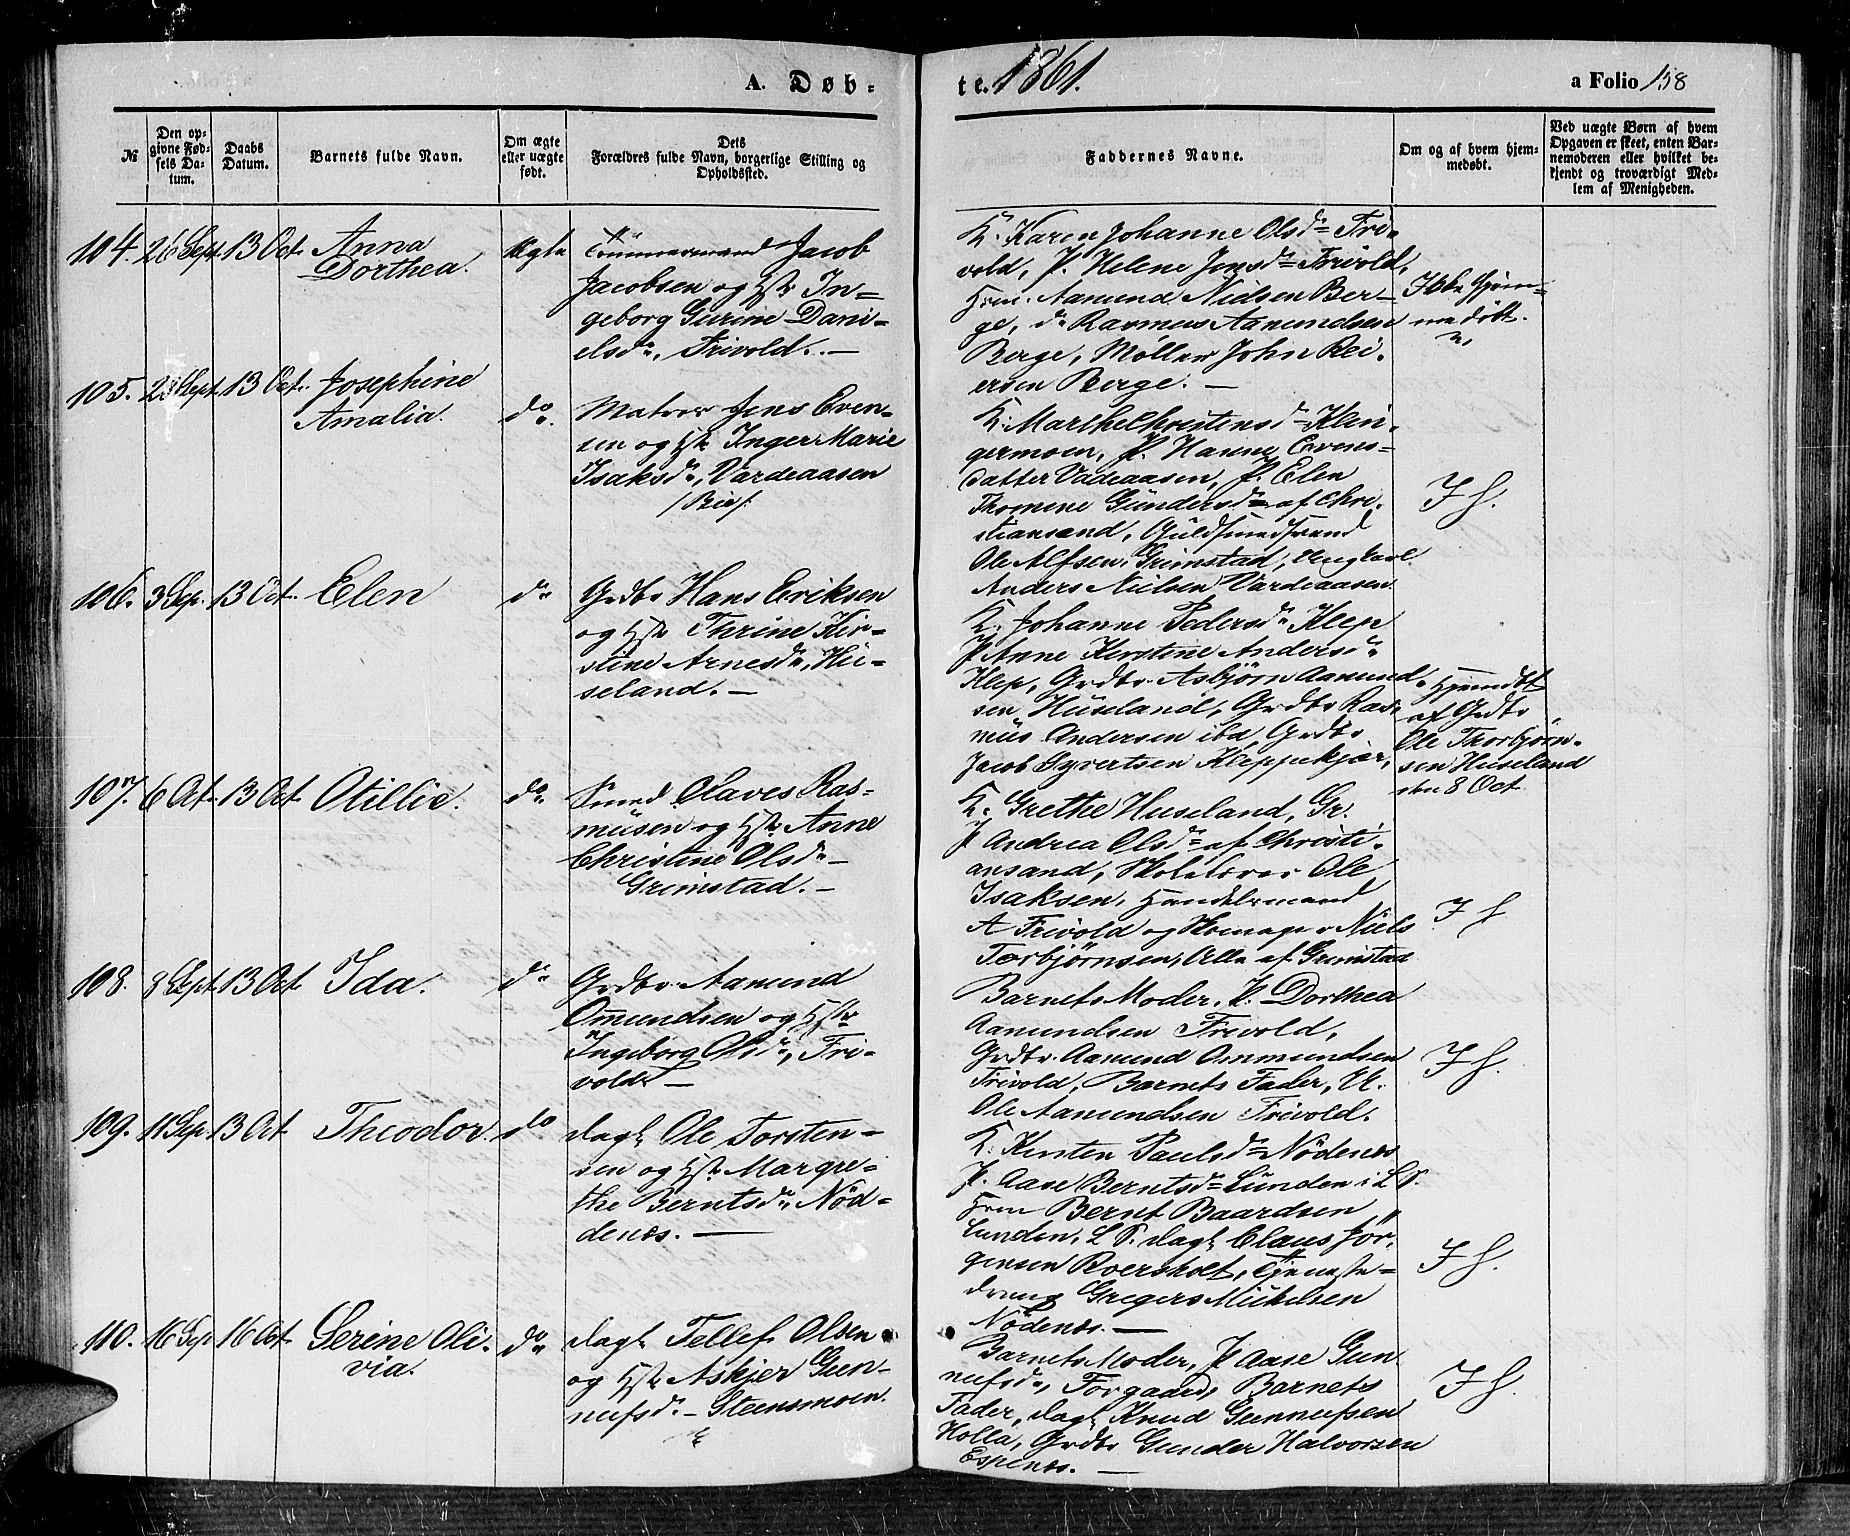 A. Døb-
te. 1861.
a Folio 158
№
Den opgivne Fødsels Datum.
Daabs Datum.
Barnets fulde Navn.
Om ægte eller uægte født.
Dets Forældres fulde Navn, borgerlige Stilling og Opholdssted.
Faddernes Navne.
Om og af hvem hjemmedøbt.
Ved uægte Børn af hvem Opgaven er skeet, enten Barnemoderen eller hvilket bekjendt og troværdigt Medlem af Menigheden.
104. 26 Sept. 13 Oct. Anna
Dorthea.
ægte
Tømmermand Jacob
Jacobsen og Hst. In=
geborg Gurine Dani-
elsd., Frivold. —
K. Karen Johanne Olsd. Fri-
vold, P. Helene Jensd. Frivold,
Hrm. Aamund Nielsen Ber-
ge, d. Rasmus Aamundsen
Berge, Møller John Rei-
ersen Berge. —
Ikke hjem-
me døbt.
105. 28 Sept. 13 Oct. Josephine
Amalia.
do.
Matros Jens Even-
sen og Hst. Inger Marie
Isaksd., Vardeaasen
/Bie/
K. Marthe Christensd. Klin-
germoen, P. Hanne Evens-
datter Vadeaasen, P. Elen
Thomine Gundersd. af Chri-
stiansand, Guldsmedsvend
Ole Alfsen, Grimstad, Ungkarl
Anders Nielsen Vardeaasen.
I H.
106. 3 Sep. 13 Oct. Elen
do
Grdbr Hans Eriksen
og Hst. Thrine Kir-
stine Arnesd., Hu-
seland. —
K. Johanne Pedersd. Klep
P. Anne Kirstine Andersd.
Klep, Grdbr. Asbjørn Aamund-
sen Huseland, Grdbr Ras-
mus Andersen ibd, Grdbr
Jacob Syvertsen Kleppekjær,
Hjemdøbt
af Grdbr
Ole Thorbjørn-
sen Huseland
den 8 Oct
107. 6 Oct. 13 Oct Otillie.
do.
Smed Olaves Ras-
musen og Hst. Anne
Christine Olsd. —
Grimstad. —
K. Grethe Huseland, Gr.
P Andrea Olsd. af Christi-
ansand, Skolelærer Ole
Isaksen, Handelsmand
A Frivold og Skomager Niels
Torbjørnsen, Alle af Grimstad
I H
108. 8 Sept. 13 Oct Ida.
do
Grdbr. Aamund
Omundsen og Hstr
Ingeborg Olsd., Fri-
vold. —
Barnets Moder, P. Dorthea
Aamundsen Frivold,
Grdbr. Aamund Ommundsen
Frivold, Barnets Fader, U.
Ole Aamundsen Frivold.
I H.
109. 11 Sep. 13 Oct Theodor.
do
Dagl. Ole Torsten-
sen og Hst. Margre-
the Berntsd. Nød-
denes. —
K. Kirsten Paulsd. Nødenes
P. Aase Berntsd. Lunden i L S.
Hrm Bernt Baardsen
Lunden, L S. Dagl. Claus Jør-
gensen Roersholt, Tjeneste-
dreng Gregers Mickelsen
Nødenes. —
I H.
110. 16 Sep 16 Oct. Serine Oli-
via.
do
Dagl. Tellef Olsen
og Hst. Askjer Gun-
nufsd. — Steensmoen.
Barnets Moder, P Aase Gun-
nufsd., Torgaard, Barnets
Fader, Dagl. Knud Gunnufsen
Holla, Grdbr Gunder Halvorsen
Espenes. —
I H.